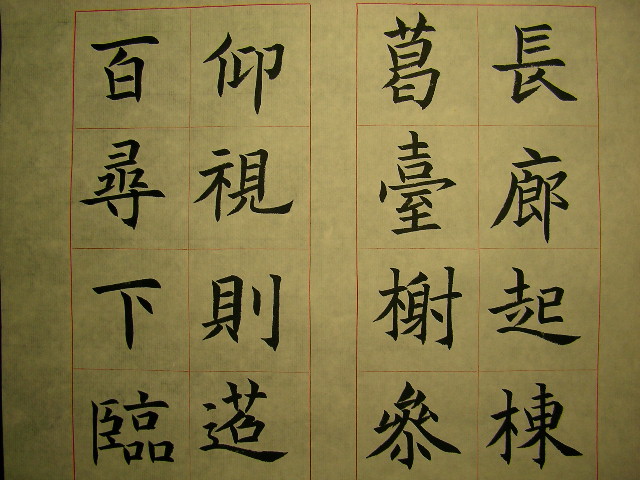 長廊起棟
葛臺榭參
仰視則迢
百尋下臨